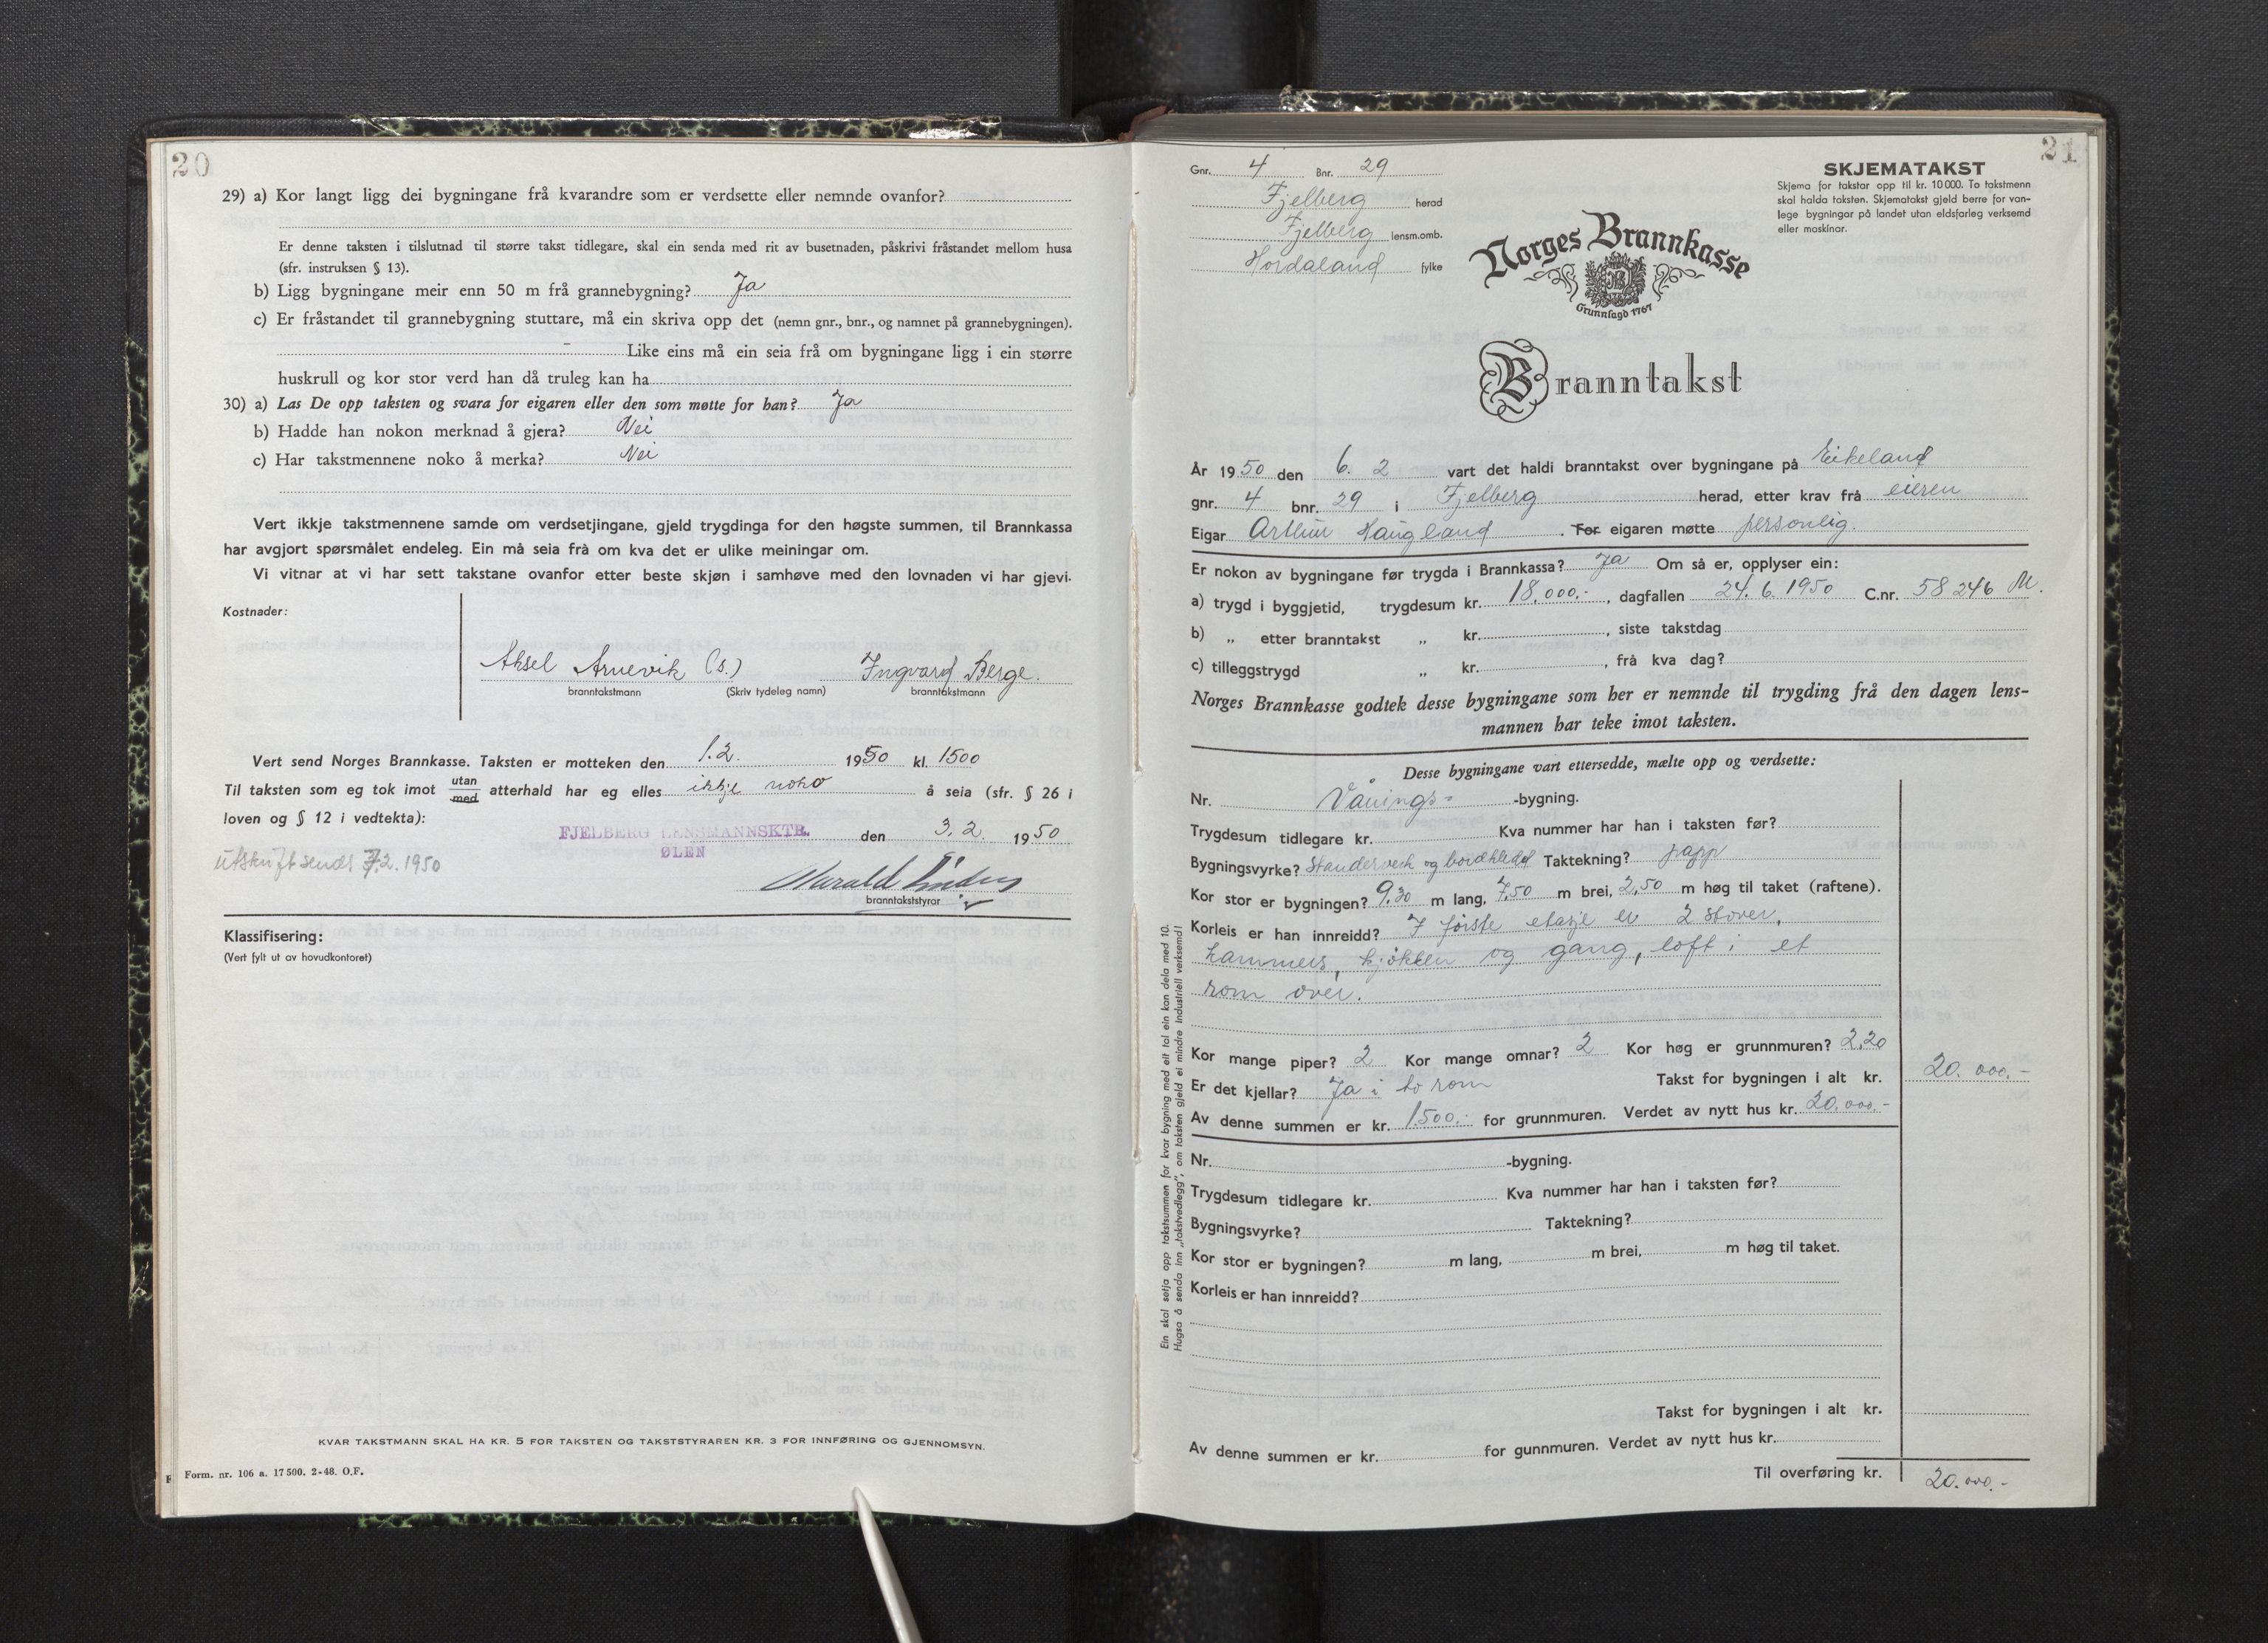 20
29) a) Kor langt ligg dei bygningane frå kvarandre som er verdsette eller nemnde ovanfor?
Er denne taksten i tilslutnad til større takst tidlegare, skal ein senda med rit av busetnaden, påskrivi fråstandet mellom husa
(sfr. instruksen § 13).
b) Ligg bygningane meir enn 50 m frå grannebygning? Ja
c) Er fråstandet til grannebygning stuttare, må ein skriva opp det (nemn gnr., bnr., og namnet på grannebygningen).
- Like eins må ein seia frå om bygningane ligg i ein større
huskrull og kor stor verd han då truleg kan ha
30) a) Las De opp taksten og svara for eigaren eller den som møtte for han? Ja
b) Hadde han nokon merknad å gjera? Nei
c) Har takstmennene noko å merka? Nei
Vert ikkje takstmennene samde om verdsetjingane, gjeld trygdinga for den høgste summen, til Brannkassa
har avgjort spørsmålet endeleg. Ein må seia frå om kva det er ulike meiningar om.
Vi vitnar at vi har sett takstane ovanfor etter beste skjøn i samhøve med den lovnaden vi har gjevi.
Kostnader:
Aksel Arnevik (s.) Ingvard Berge.
branntakstmann (Skriv tydeleg namn) branntakstmann
Vert send Norges Brannkasse. Taksten er motteken den 1.2. 1950 kl. 1500
Til taksten som eg tok imot utan/med atterhald har eg elles ikkje noko å seia (sfr. § 26 i
loven og § 12 i vedtekta):
FJELBERG LENSMANNSKTR. den 3.2. 1950
ØLEN
utskrift sendt 7.2.1950
Harald
branntakststyrar
Klassifisering:
(Vert fylt ut av hovudkontoret)
KVAR TAKSTMANN SKAL HA KR. 5 FOR TAKSTEN OG TAKSTSTYRAREN KR. 3 FOR INNFØRING OG GJENNOMSYN.
Form. nr. 106 a. 17 500. 2-48. O.F.
21
Gnr. 4 Bnr. 29
Fjelberg herad
Fjelberg lensm.omb.
Hordaland fylke
SKJEMATAKST
Skjema for takstar opp til kr. 10 000. To takstmenn
skal halda taksten. Skjematakst gjeld berre for van-
lege bygningar på landet utan eldsfarleg verksemd
eller maskinar.
Norges Brannkasse
Grunnlagd 1767
Branntakst
År 1950 den 6. 2 vart det haldi branntakst over bygningane på Eikeland
gnr. 4 bnr. 29 i Fjelberg herad, etter krav frå eieren
Eigar Arthur Haugland. For eigaren møtte personlig.
Er nokon av bygningane før trygda i Brannkassa? Ja Om så er, opplyser ein:
a) trygd i byggjetid, trygdesum kr. 18.000.-, dagfallen 24.6.1950 C.nr. 58246 M.
b) „ etter branntakst „ kr. , siste takstdag
c) tilleggstrygd „ kr. , frå kva dag?
Norges Brannkasse godtek desse bygningane som her er nemnde til trygding frå den dagen lens-
mannen har teke imot taksten.
Desse bygningane vart ettersedde, mælte opp og verdsette:
Nr. Vånings- -bygning.
Trygdesum tidlegare kr. Kva nummer har han i taksten før?
Bygningsvyrke? Standerverk og bordkledd Taktekning? papp
Kor stor er bygningen? 9,30 m lang, 7,50 m brei, 2,50 m høg til taket (raftene).
Korleis er han innreidd? I første etasje er 2 stover,
kammers, kjøkken og gang, loft i et
rom over.
Kor mange piper? 2 Kor mange omnar? 2 Kor høg er grunnmuren? 2,20
Er det kjellar? Ja i to rom Takst for bygningen i alt kr. 20.000.-
Av denne summen er kr. 1.500.- for grunnmuren. Verdet av nytt hus kr. 20.000.-
Nr. -bygning.
Trygdesum tidlegare kr. Kva nummer har han i taksten før?
Bygningsvyrke? Taktekning?
Kor stor er bygningen? m lang, m brei, m høg til taket.
Korleis er han innreidd?
Takst for bygningen i alt kr.
Av denne summen er kr. for gunnmuren. Verdet av nytt hus kr.
Til overføring kr. 20.000.-
Ein skal setja opp takstsummen for kvar bygning med eit tal ein kan dela med 10.
Hugsa å senda inn „takstvedlegg", om taksten gjeld ei mindre industriell verksemd!